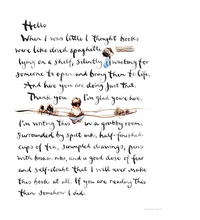 Hello
When I was little I thought books
were like dried spaghetti
lying on a shelf, silently waiting for
someone to open and bring them to life.
And here you are doing just that.
Thank you. I'm glad you're here.
I'm writing this in a grubby room,
surrounded by spilt inks, half-finished
cups of tea, scrumpled drawings, pens
with broken nibs, and a good dose of fear
and self-doubt that I will ever make
this book at all. If you are reading this
then somehow I did.